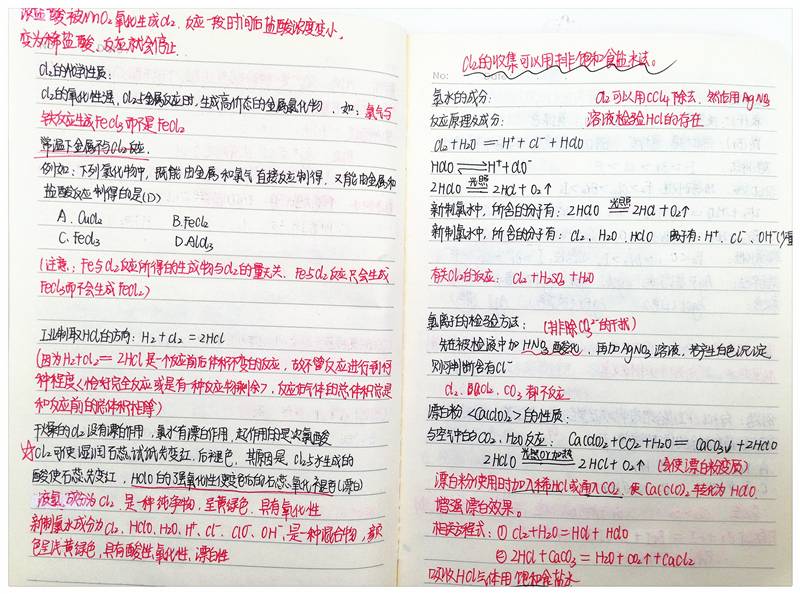 浓盐酸被MnO2氧化生成Cl2、反应一段时间后盐酸浓度变小,
变为稀盐酸、反应就会停止.
Cl2的化学性质:
Cl2的氧化性强、Cl2与金属反应时,生成高价态的金属氯化物、如:氯气与
铁反应生成FeCl3而不是FeCl2
常温下金属不与Cl2反应.
例如:下列氯化物中,既能由金属和氯气直接反应制得、又能由金属和
盐酸反应制得的是(D)
A. CuCl2 B.FeCl2
C. FeCl3 D.AlCl3
(注意:Fe与Cl2反应所得的生成物与Cl2的量无关、Fe与Cl2反应只会生成
FeCl3而不会生成FeCl2)
工业制取HCl的方向: H2+Cl2=2HCl
(因为H2+Cl2=2HCl是一个反应前后体积不变的反应,故不管反应进行到何
种程度<恰好完全反应或是有一种反应物剩余>,反应后气体的总体积总是
和反应前的总体积相
干燥的Cl2没有漂白作用,氯水有漂白作用,起作用的是次氯酸
☆Cl2可使湿润石蕊试纸先变红,后褪色,其原因是Cl2与水生成的
酸使石蕊先变红, HClO的强氧化性使变色后的石蕊氧化褪色(漂白)
液氯成分为Cl2是一种纯净物,呈黄绿色,具有氧化性
新制氯水成分为Cl2、HClO、H2O、H+、Cl-、ClO-、OH-,是一种混合物,颜
色呈浅黄绿色,具有酸性、氧化性、漂白性
Cl2的收集可以用排饱和食盐水法。
氯水的成分: Cl2可以用CCl4除去、然后用AgNO3
反应原理及成分: 溶液检验HCl的存在
Cl2+H2O = H++Cl-+HClO
HClO ⇌ H++ClO-
2HClO 光照 2HCl+O2↑
新制氯水中,所含的分子有: 2HClO 光照 2HCl+O2↑
新制氯水中,所含的分子有: Cl2、H2O、HClO 离子有: H+、Cl-、OH-
有关Cl2的反应: Cl2+H2SO3+H2O
氯离子的检验方法: (排除CO32-的干扰)
先在被检液中加HNO3酸化,再加AgNO3溶液,若产生白色沉淀,
则可判断含有Cl-
Cl2、BaCl2、CO2都不反应
漂白粉<Ca(ClO)2>的性质:
与空气中的CO2、H2O反应: Ca(ClO)2+CO2+H2O = CaCO3↓+2HClO
2HClO 光照or加热 2HCl+O2↑ (会使漂白粉变质)
漂白粉使用时加入稀HCl或通入CO2、使Ca(ClO)2转化为HClO
增强漂白效果。
相关方程式: ① Cl2+H2O=HCl+HClO
② 2HCl+CaCO3=H2O+CO2↑+CaCl2
吸收HCl气体用饱和食盐水